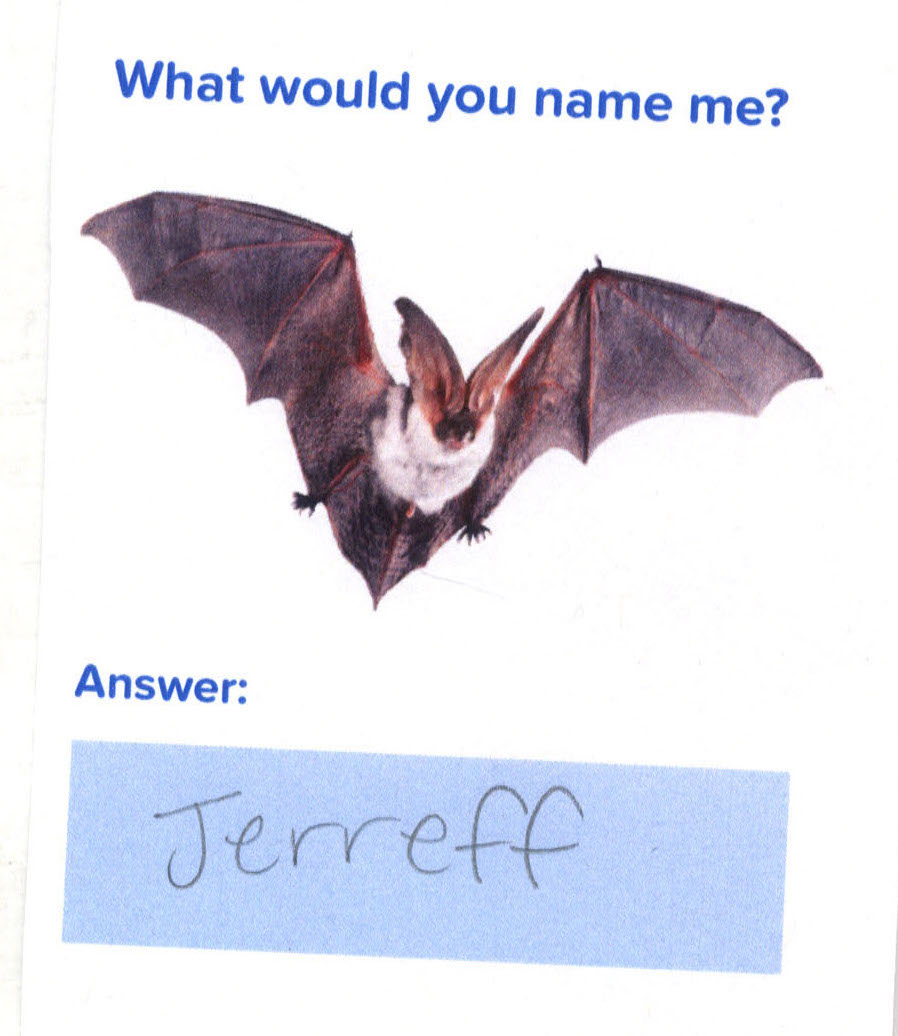 What would you name me?
Answer:
Jerreff